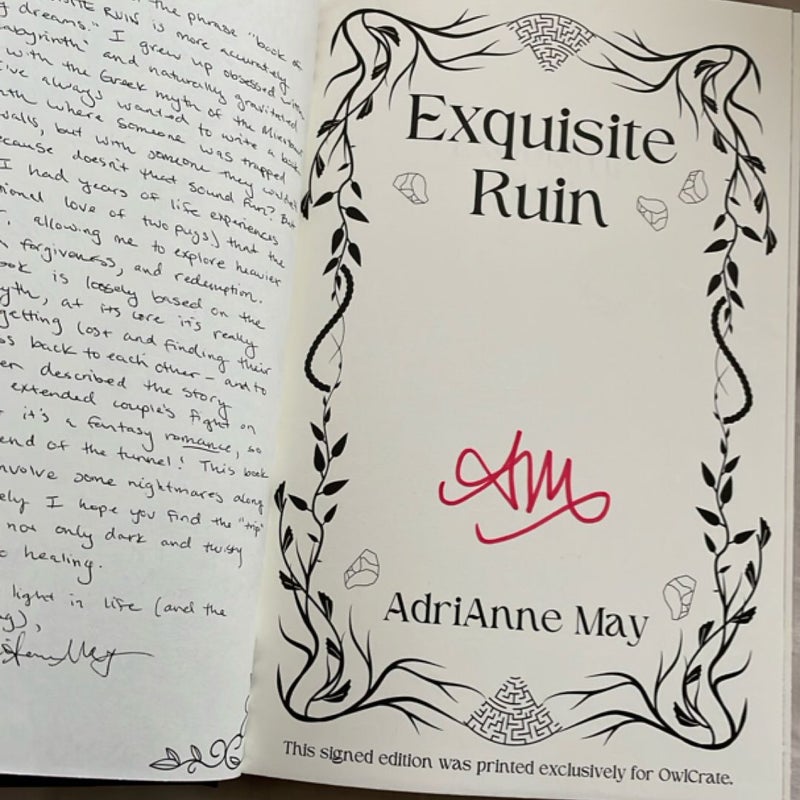 the phrase "book of
RUIN is more accurately
dreams." I grew up obsessed with
Labyrinth and naturally gravitated
with the Greek myth of the Minotaur
I've always wanted to write a book
where someone was trapped
walls, but with someone they
because doesn't that sound fun? But
I had years of life experiences
love of two pugs) that the
allowing me to explore heavier
forgiveness, and redemption.
book is loosely based on the
myth, at its core it's really
getting lost and finding their
back to each other – and to
described the story
extended couple's fight on
it's a fantasy romance, so
end of the tunnel! This book
involve some nightmares along
I hope you find the "trip"
not only dark and twisty
healing.
light in life (and the
Exquisite
Ruin
AM
AdriAnne May
This signed edition was printed exclusively for OwlCrate.